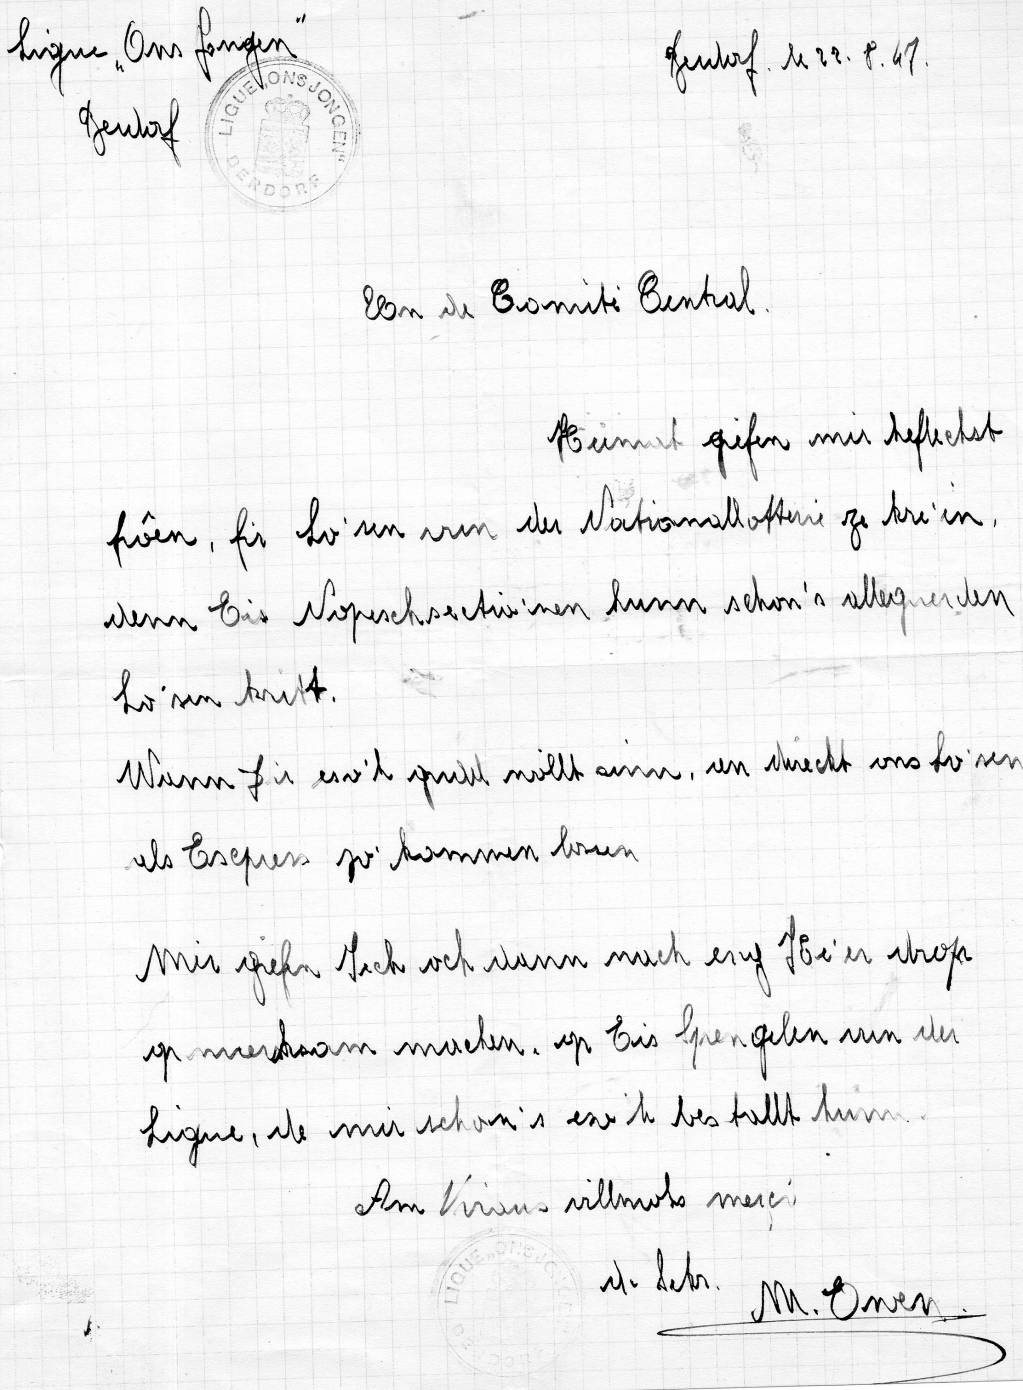 Ligue „Ons Jongen"
Derdorf, le 22. 8. 47.
Derdorf
LIGUE „ONS JONGEN"
DERDORF
Un de Comité Central.
Heimat giefen mir heflechst
frôen, fir Lo'sen vun der Nationallotterie ze kre'in,
denn Eis Nopeschsectio'nen hunn schon's alleguerden
Lo'sen kritt.
Wann Dir eso'h gudd wöllt sinn, en direckt ons Lo'sen
als Express zo' kommen losen
Mir giefen Iech och dann nach eng Ke'er drop
opmierksam machen, op Eis Spengelen vun der
Ligue, de mir schon's eso'h bestallt hunn.
Am Viraus villmols merçi
de Sekr.
M. Owen.
LIGUE „ONS JONGE